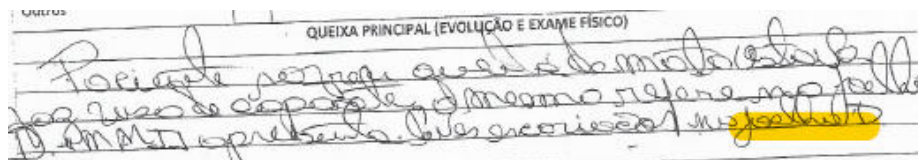 Outros
QUEIXA PRINCIPAL (EVOLUÇÃO E EXAME FÍSICO)
Paciente queda de moto
uso de capacete, o mesmo refere no joelho
D. MMII apresenta leves escoriação no joelho D